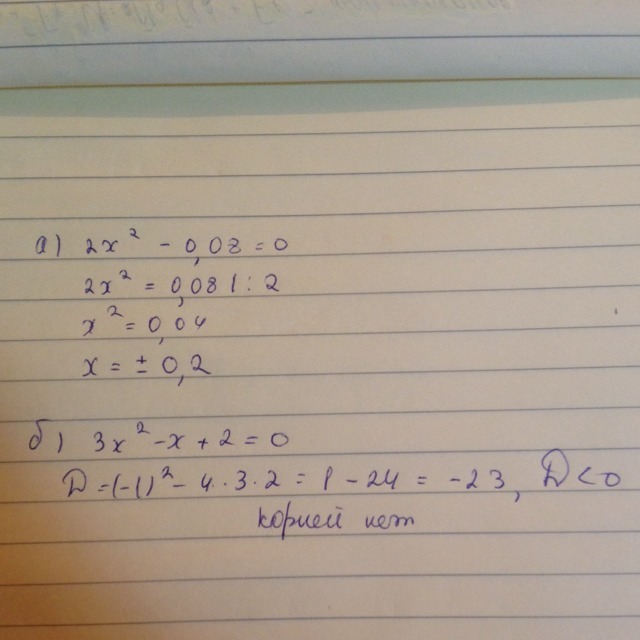 а) 2x² - 0,08 = 0
2x² = 0,08 | : 2
x² = 0,04
x = ± 0,2
б) 3x² - x + 2 = 0
D = (-1)² - 4 · 3 · 2 = 1 - 24 = -23, D < 0
корней нет